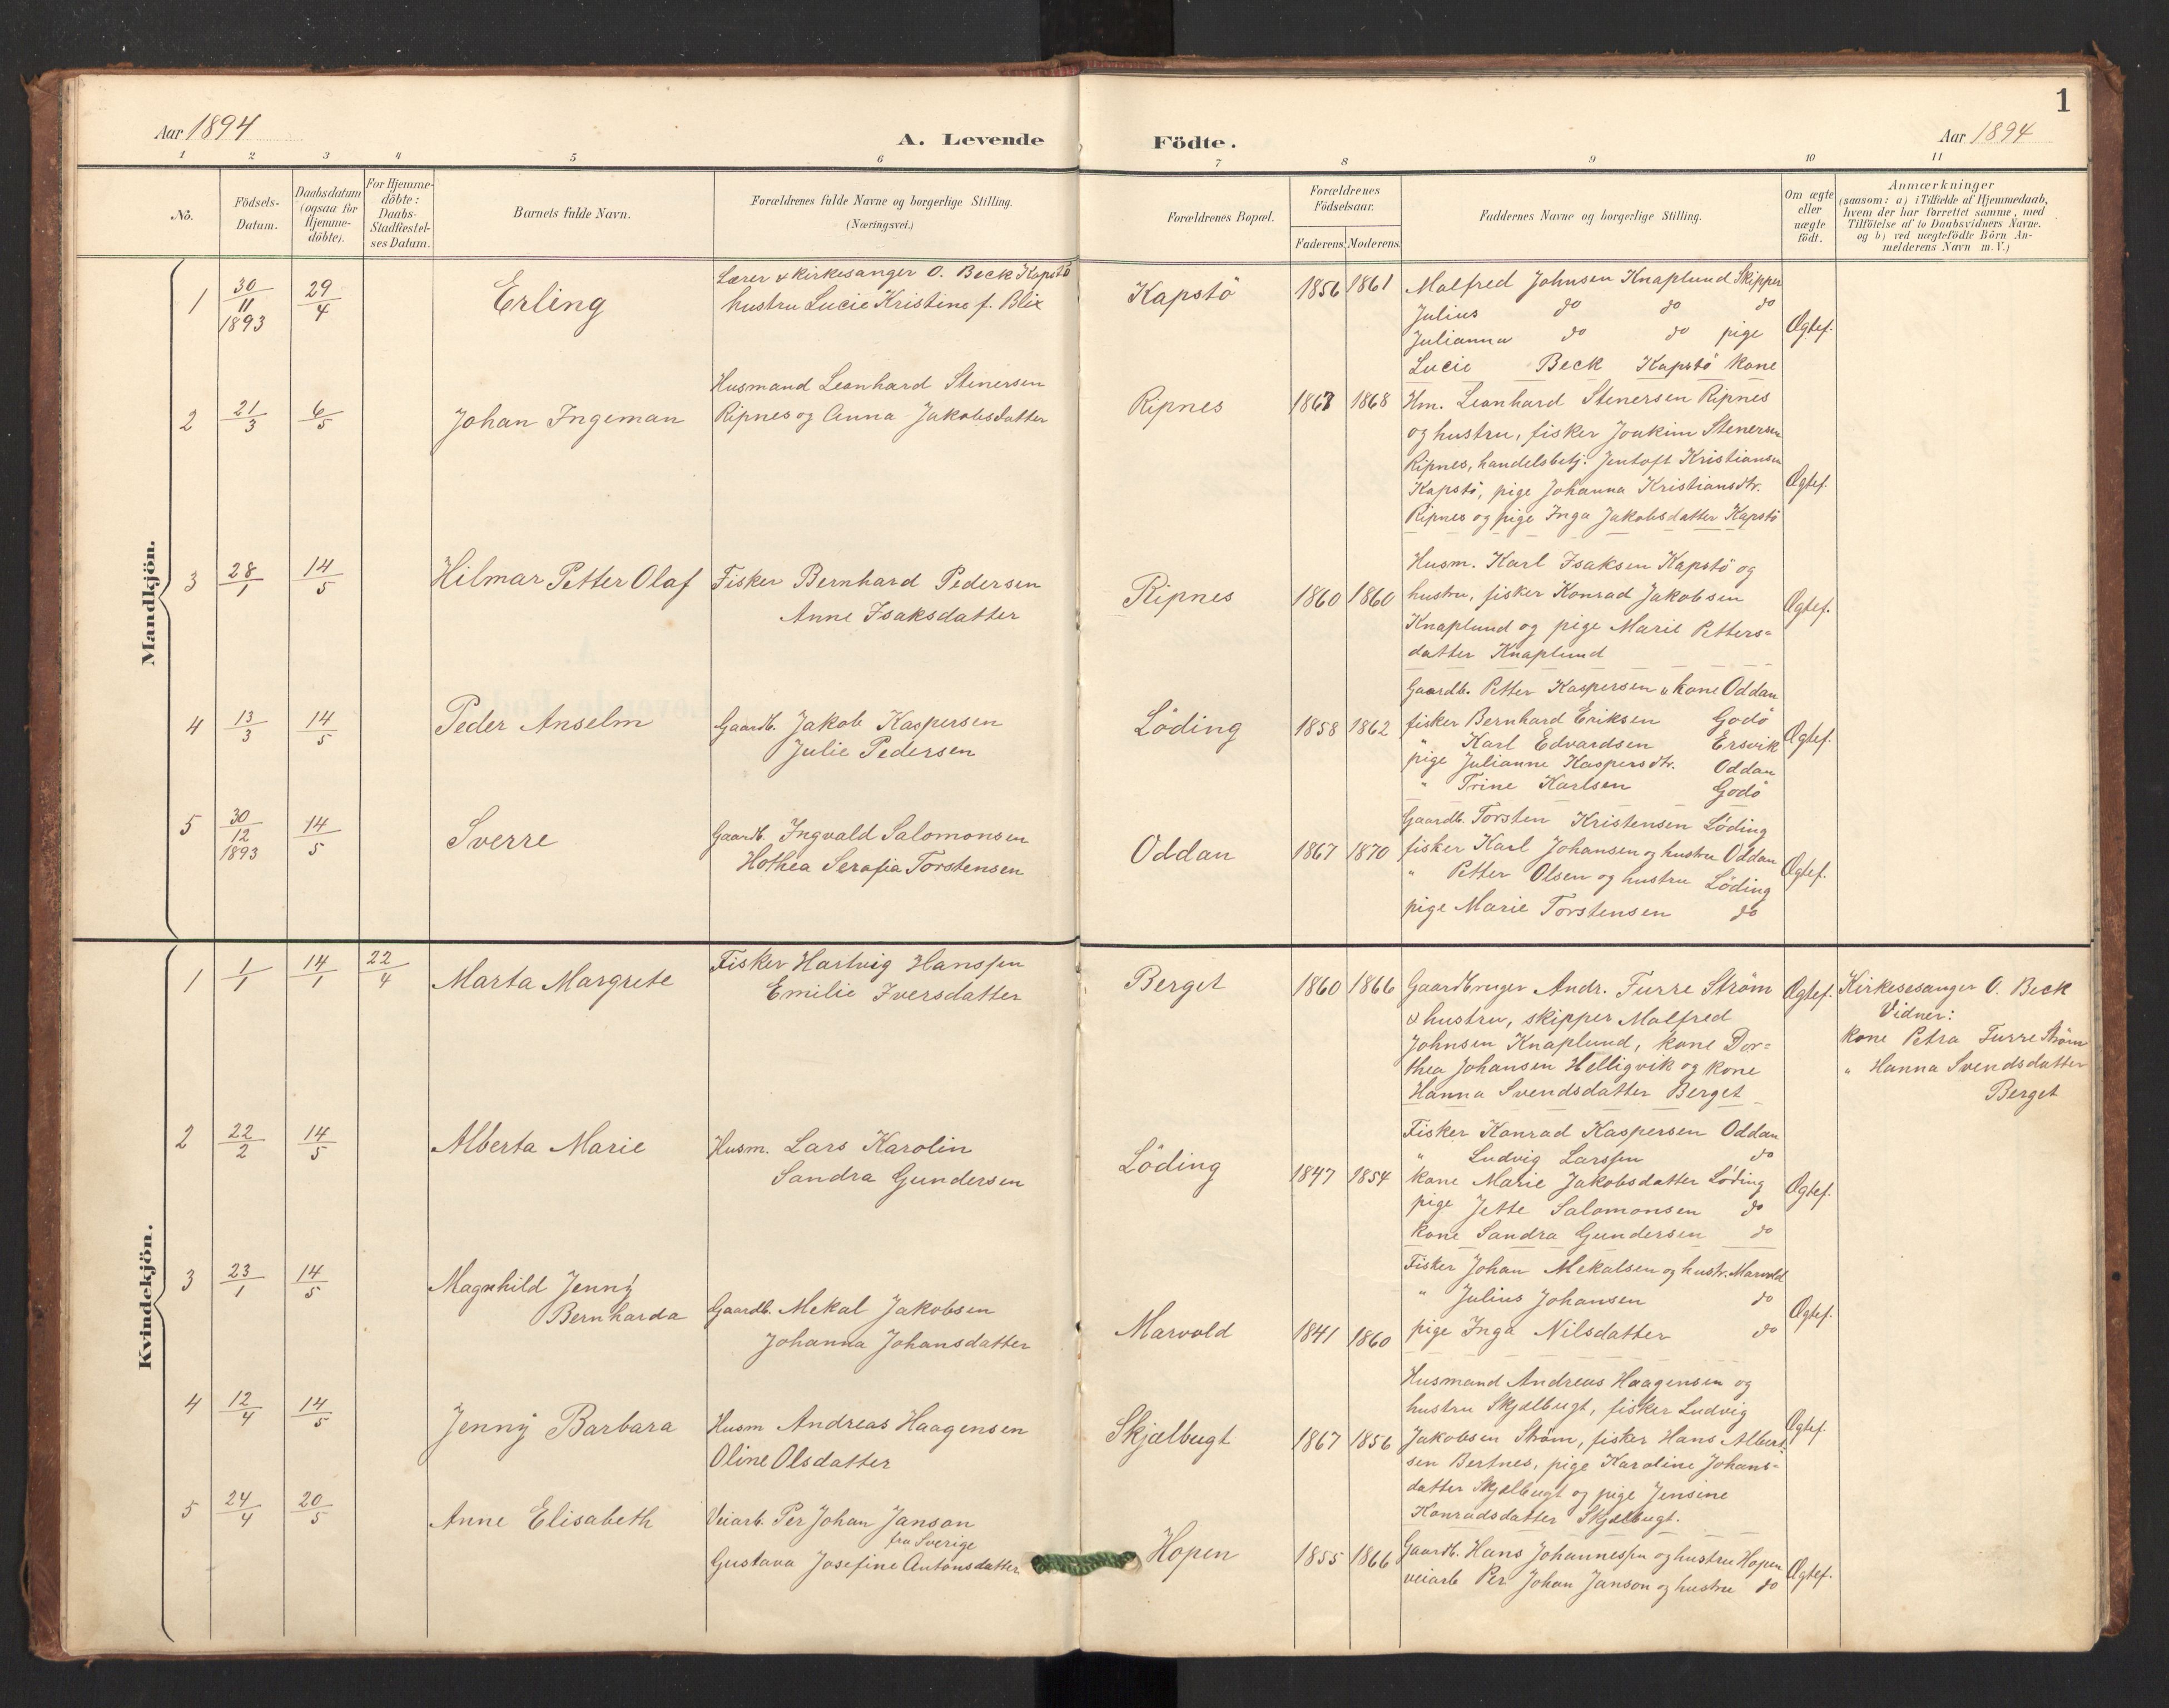 1
Aar 1894
A. Levende Födte.
Aar 1894
1 2 3 4 5 6 7 8 9 10 11
No.
Födsels-
Datum.
Daabsdatum
(ogsaa för
Hjemme-
döbte).
For Hjemme-
döbte:
Daabs-
Stadfæstel-
ses Datum.
Barnets fulde Navn.
Forældrenes fulde Navne og borgerlige Stilling.
(Næringsvei.)
Forældrenes Bopæl.
Forældrenes
Födselsaar.
Faderens. Moderens.
Faddernes Navne og borgerlige Stilling.
Om ægte
eller
uægte
födt.
Anmærkninger
(saasom: a) i Tilfælde af Hjemmedaab,
hvem der har forrettet samme, med
Tilföielse af to Daabsvidners Navne.
og b) ved uægtefödte Börn An-
melderens Navn m. V.)
Mandkjön.
1
30/11 1893
29/4
Erling
Lærer & kirkesanger O. Beck Kapstö
hustru Lucie Kristine f. Blix
Kapstö
1856 1861
Malfred Johnsen Knaplund Skipper
Julius do do do
Julianna do do pige
Lucie Beck Kapstö kone
Ægtef.
2
21/3
6/5
Johan Ingeman
Husmand Leonhard Stenersen
Ripnes og Anna Jakobsdatter
Ripnes
1867 1868
Hm. Leonhard Stenersen Ripnes
og hustru, fisker Joakim Stenersen
Ripnes, handelsbetj. Jentoft Kristiansen
Kapstö, pige Johanna Kristiansdtr.
Ripnes og pige Inga Jakobsdatter Kapstö
Ægtef.
3
28/1
14/5
Hilmar Petter Olaf
Fisker Bernhard Pedersen
Anne Isaksdatter
Ripnes
1860 1860
Husm. Karl Isaksen Kapstö og
hustru, fisker Konrad Jakobsen
Knaplund og pige Marie Petters=
datter Knaplund
Ægtef.
4
13/3
14/5
Peder Anselm
Gaardb. Jakob Kaspersen
Julie Pedersen
Löding
1858 1862
Gaardb. Petter Kaspersen & kone Oddan
fisker Bernhard Eriksen Godö
" Karl Edvardsen Ersvik
pige Julianne Kaspersdtr. Oddan
" Trine Karlsen Godö
Ægtef.
5
30/12 1893
14/5
Sverre
Gaardb. Ingvald Salomonsen
Hothea Serafia Torstensen
Oddan
1867 1870
Gaardb. Torsten Kristensen Löding
fisker Karl Johansen og hustru Oddan
" Petter Olsen og hustru Löding
pige Marie Torstensen do
Ægtef.
Kvindekjön.
1
1/1
14/1
22/4
Marta Margrete
Fisker Hartvig Hanssen
Emilie Iversdatter
Berget
1860 1866
Gaardbruger Andr. Furre Ström
& hustru, skipper Malfred
Johnsen Knaplund, kone Dor=
thea Johansen Helligvik og kone
Hanna Svendsdatter Berget
Ægtef.
Kirkesesanger O. Beck
Vidner:
kone Petra Furre Ström
" Hanna Svendsdatter
Berget
2
22/2
14/5
Alberta Marie
Husm. Lars Karolin
Sandra Gundersen
Löding
1847 1854
Fisker Konrad Kaspersen Oddan
" Ludvig Larssen do
kone Marie Jakobsdatter Löding
pige Jette Salomonsen do
kone Sandra Gundersen do
Ægtef.
3
23/1
14/5
Magnhild Jenny
Bernharda
Gaardb. Mekal Jakobsen
Johanna Johansdatter
Marvold
1841 1860
Fisker Johan Mekalsen og hustr. Marvold
" Julius Johansen do
pige Inga Nilsdatter do
Ægtef.
4
12/4
14/5
Jenny Barbara
Husm Andreas Haagensen
Oline Olsdatter
Skjælbugt
1867 1856
Husmand Andreas Haagensen og
hustru Skjælbugt, fisker Ludvig
Jakobsen Ström, fisker Hans Albert
sen Bertnes, pige Karoline Johans=
datter Skjælbugt og pige Jensine
Konradsdatter Skjælbugt.
Ægtef.
5
24/4
20/5
Anne Elisabeth
Veiarb. Per Johan Janson
fra Sverige
Gustava Josefine Antonsdatter
Hopen
1855 1866
Gaardb. Hans Johannessen og hustru Hopen
veiarb Per Johan Janson og hustru do
Ægtef.